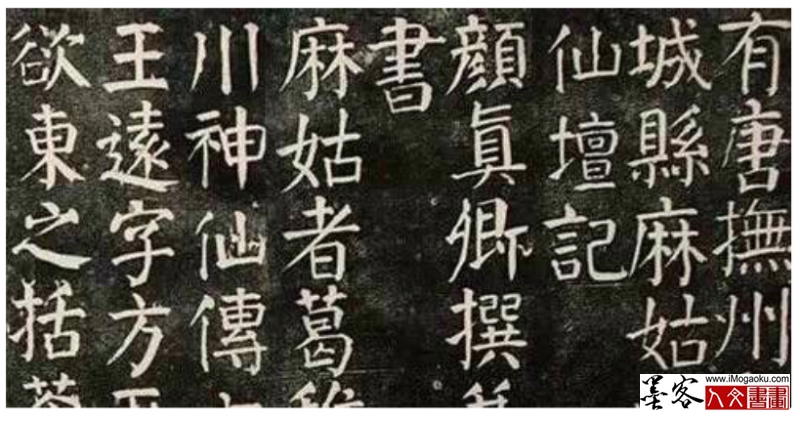 有唐撫州
城縣麻姑
仙壇記
顏眞卿撰
書
麻姑者葛
川神仙傳
王遠字方平
欲東之括
墨客
www.iMogaoku.com
人文書畫